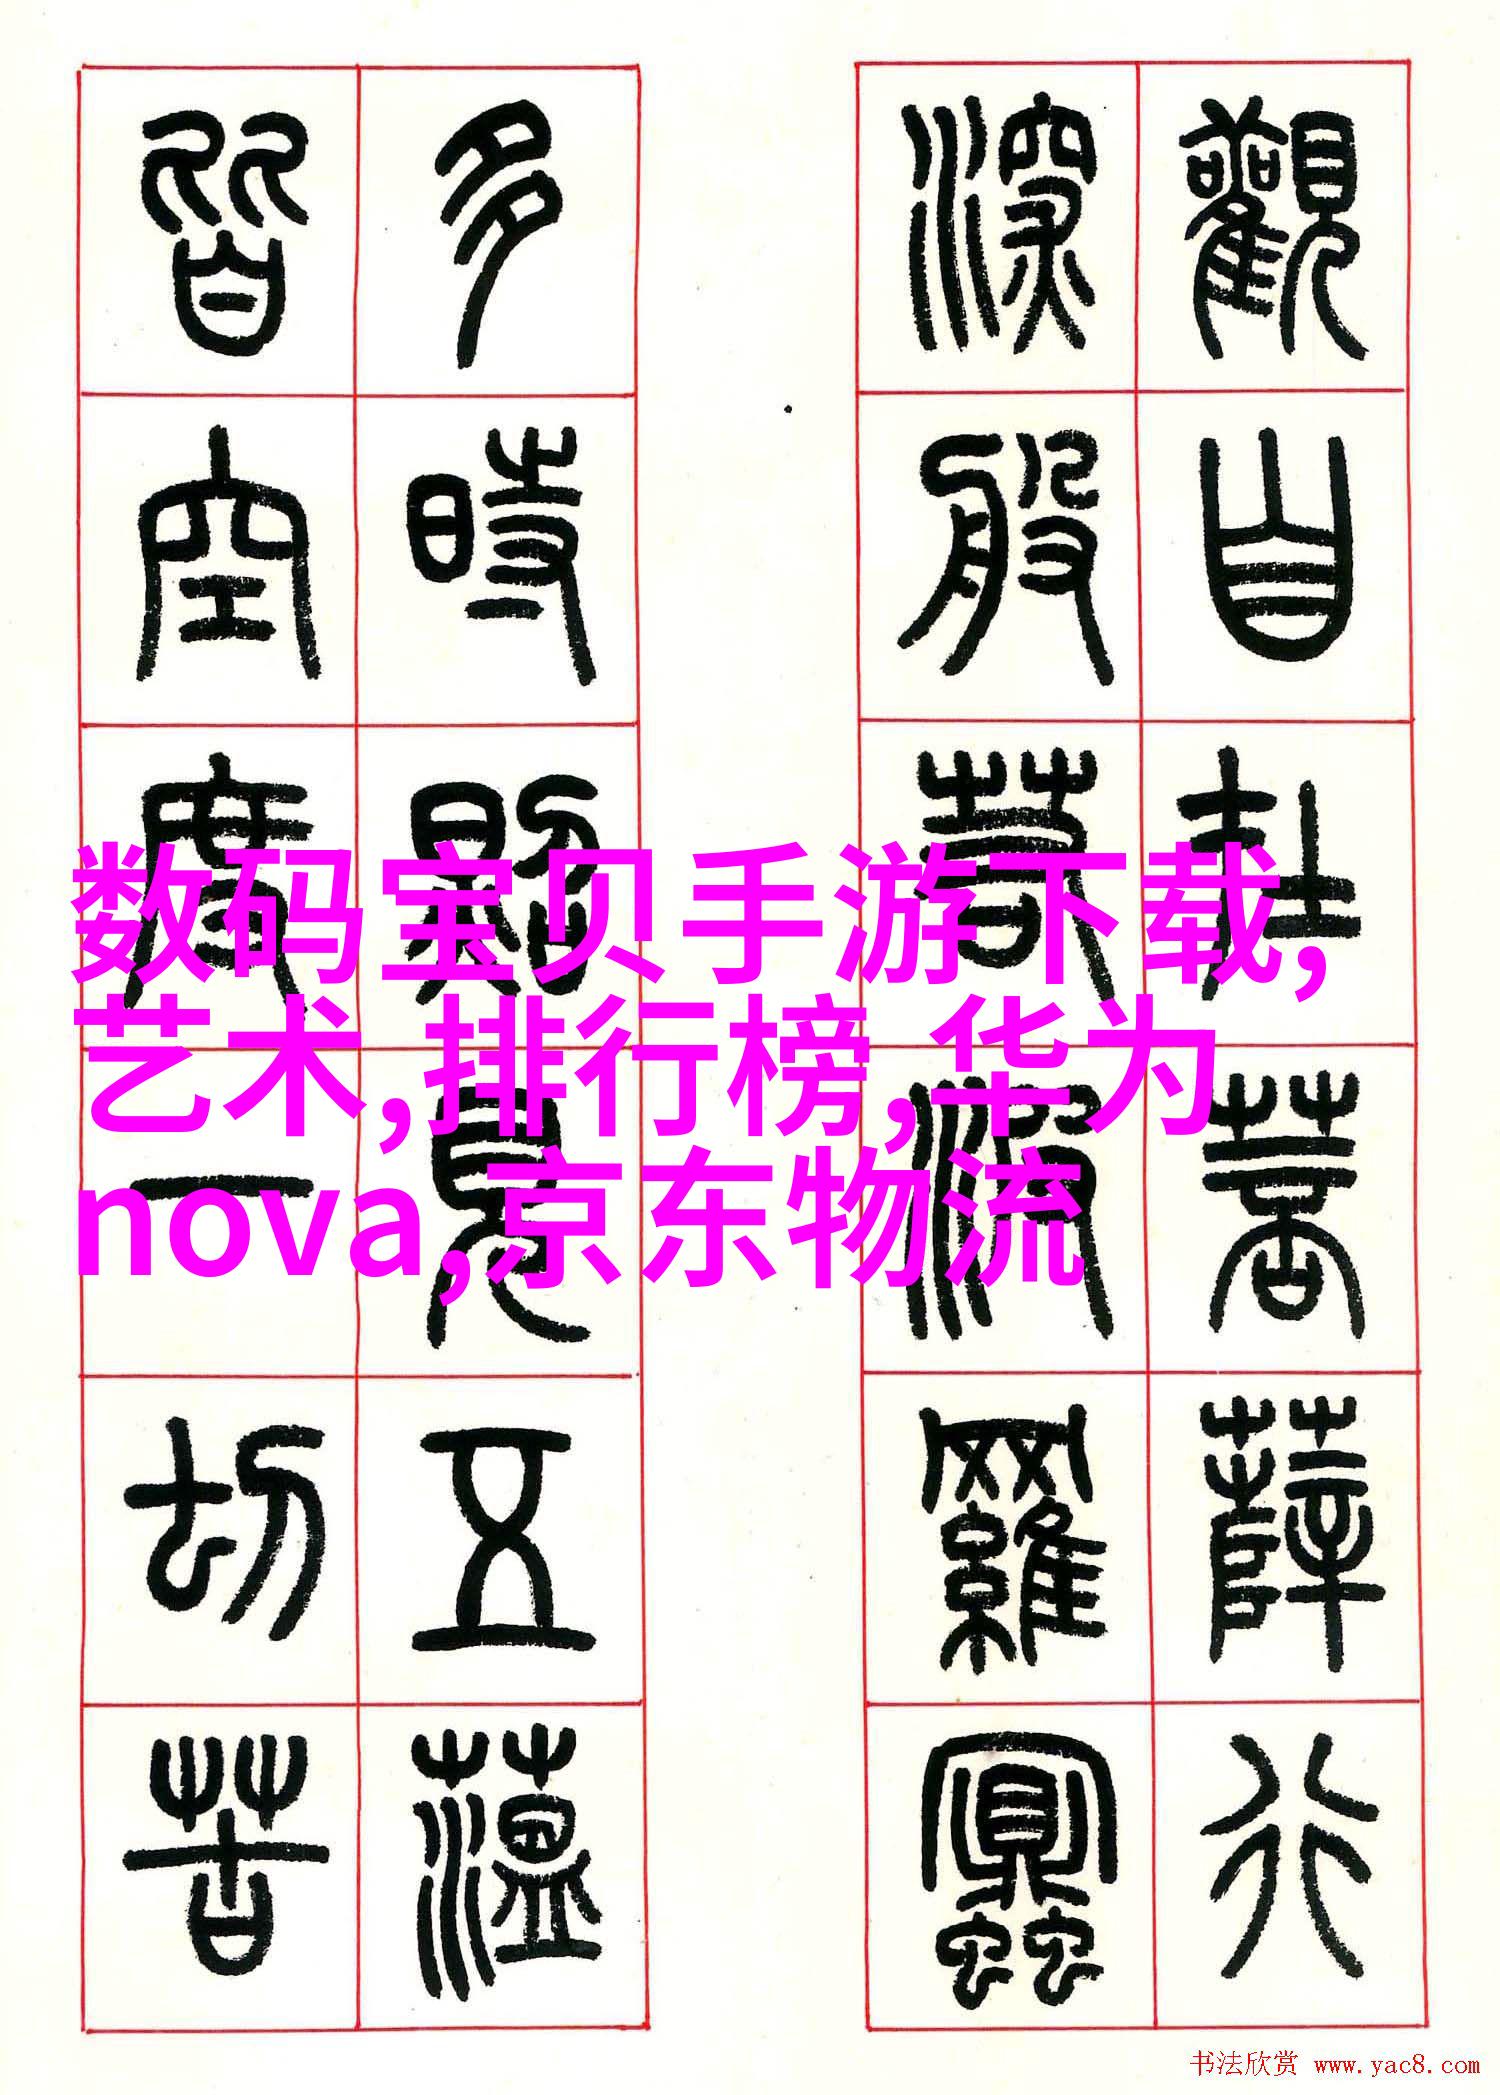 觀自在菩薩行
深般若波羅蜜
多時照見五蘊
皆空度一切苦
数码宝贝手游下载,
艺术,排行榜,华为
nova,京东物流
书法欣赏 www.yac8.com